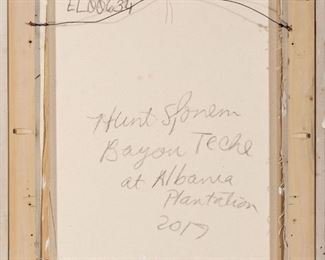 EL00634
Hunt Slonem
Bayou Teche
at Albania
Plantation
2019